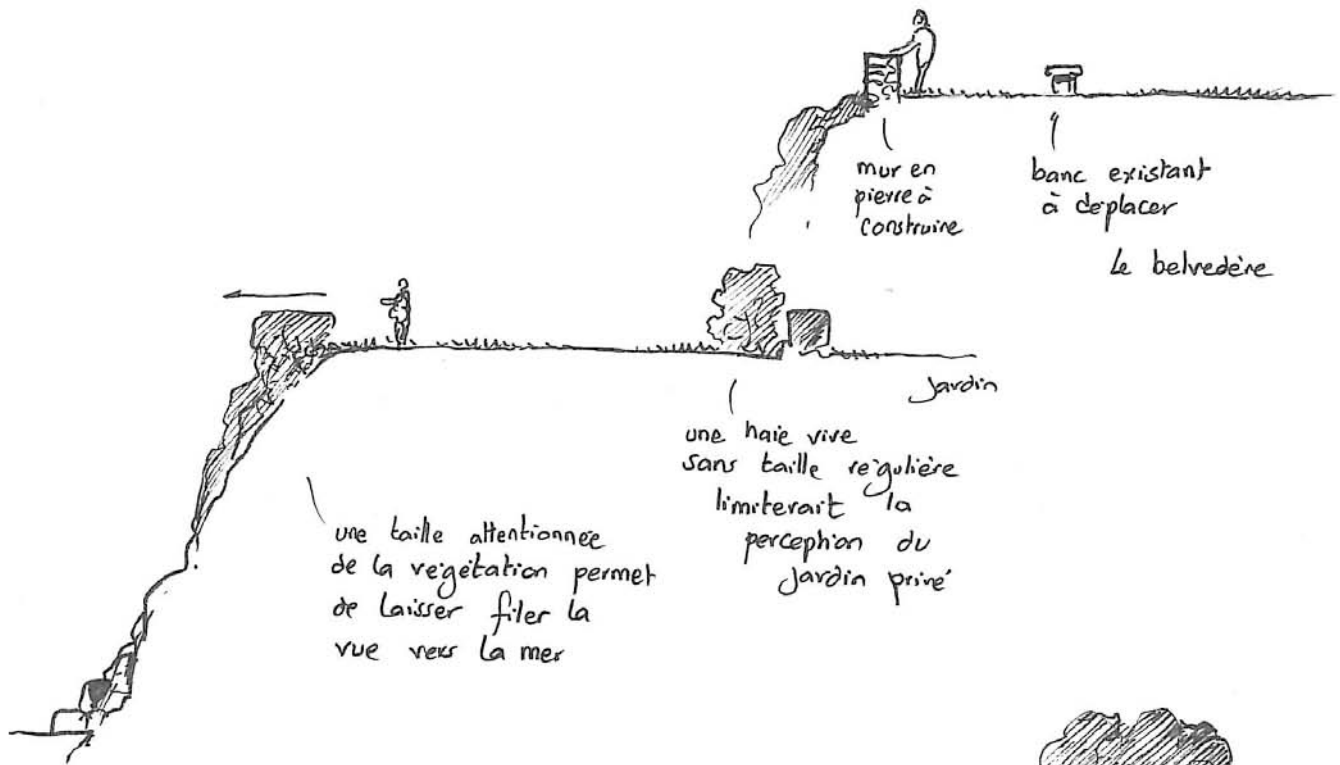 mur en
pierre à
construire
banc existant
à déplacer
Le belvedère
Jardin
une haie vive
sans taille régulière
limiterait la
perception du
jardin privé
une taille attentionnée
de la végétation permet
de laisser filer la
vue vers la mer